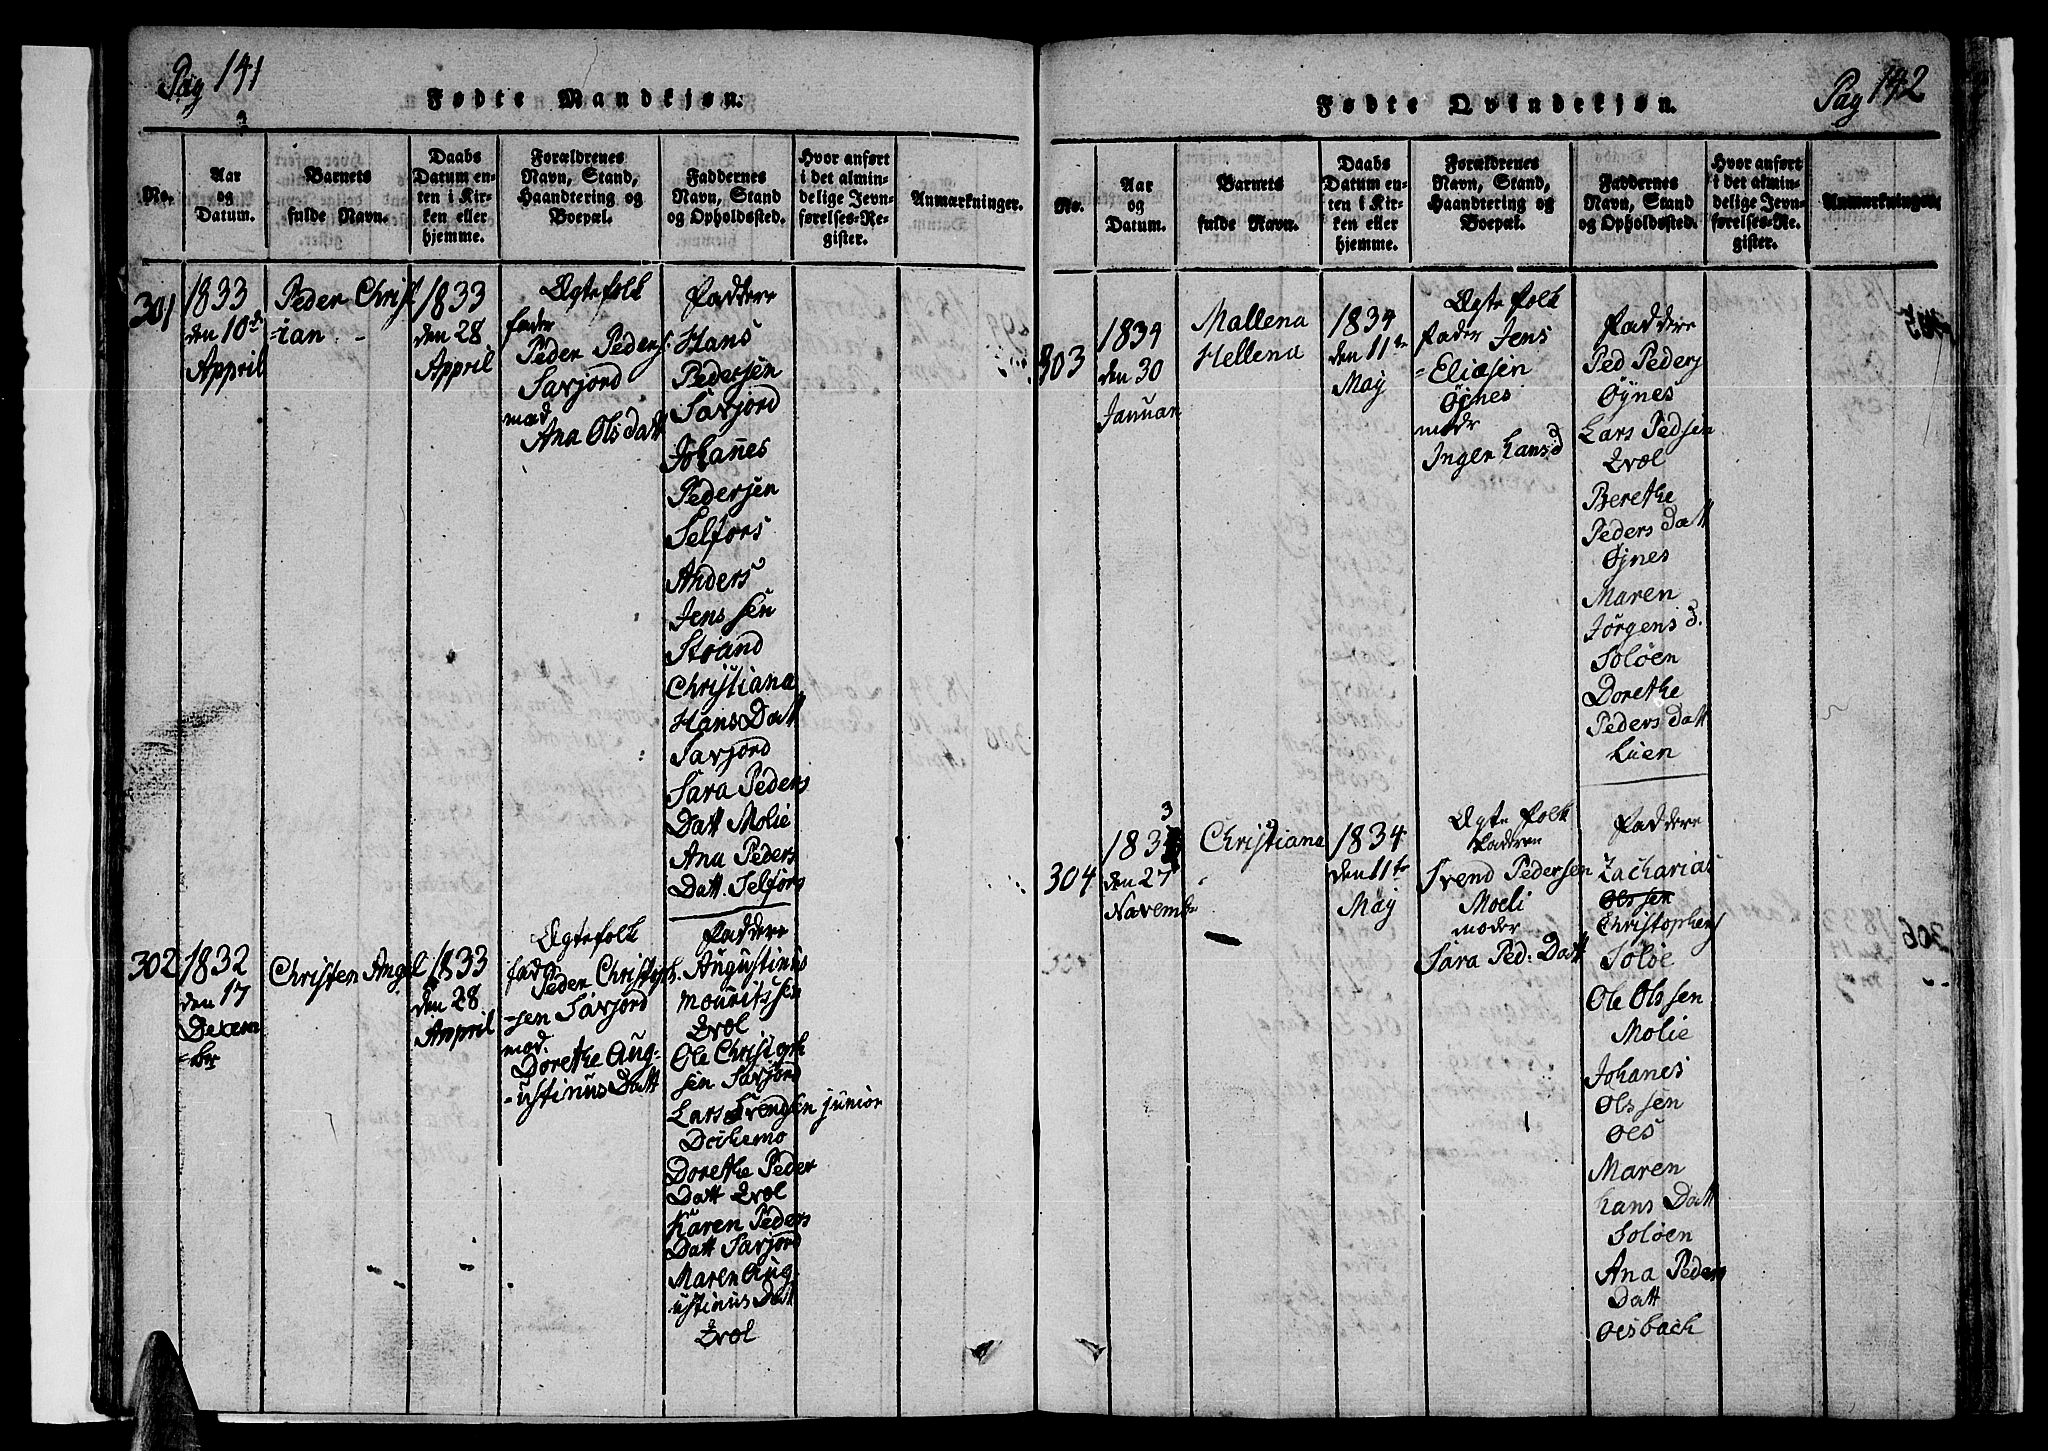 Pag 141
Fødte Mandkjøn.
No.
Aar
og
Datum.
Barnets
fulde Navn.
Daabs
Datum en-
ten i Kir-
ken eller
hjemme.
Forældrenes
Navn, Stand,
Haandtering og
Boepæl.
Faddernes
Navn, Stand
og Opholdssted.
Hvor anført
i det almin-
delige Jevn-
førelses-Re-
gister.
Anmærkninger.
301
1833
den 10de
Appril
Peder Christ
=ian
1833
den 28
Appril
Ægtefolk
fader
Peder Peders.
Savjord
mod
Ana Olsdatt
Faddere
Hans
Pedersen
Savjord
Johañes
Pedersen
Selfors
Anders
Jenssen
Strand
Christiana
Hans Datt
Savjord
Sara Peders
Datt Molie
Ana Peders
Datt Selfors
302
1832
den 17
Decem
=br
Christen Angel
1833
den 28
Appril
Ægtefolk
fader
Peder Christoph.
-sen Savjord
mod.
Dorethe Aug-
-ustinus Datt
Faddere
Augustinus
Mouritssen
Evol
Ole Christoph
sen Savjord
Lars Svendsen junior
Dorethe Peder
Datt Evol
Karen Peders
Datt Savjord
Maren Aug
ustinus Datt
Evol
Pag 142
Fødte Qvindekjøn.
No.
Aar
og
Datum.
Barnets
fulde Navn.
Daabs
Datum en-
ten i Kir-
ken eller
hjemme.
Forældrenes
Navn, Stand,
Haandtering og
Boepæl.
Faddernes
Navn, Stand
og Opholdssted.
Hvor anført
i det almin-
delige Jevn-
førelses-Re-
gister.
Anmærkninger.
303
1834
den 30
Januar
Mallena
Hellena
1834
den 11te
May
Ægte folk
fader Jens
=Eliasen
Øjnes
modr
Inger Hansd
Faddere
Ped Peders
Øynes
Lars Pedsen
Evol
Berethe
Peders datt
Øjnes
Maren
Jörgens d.
Soløen
Dorethe
Peders datt
Lien
304
3
1834
den 27
Novemb
Christiana
1834
den 11te
May
Ægte folk
Faderen
Svend Pedersen
Moeli
moder
Sara Ped: Datt
Faddere
Zacharias
Olssen
Christophers
Soløe
Ole Olssen
Molie
Johanes
Olssen
Oes
Maren
Hans Datt
Soløen
Ana Peders
Datt
Oesbach